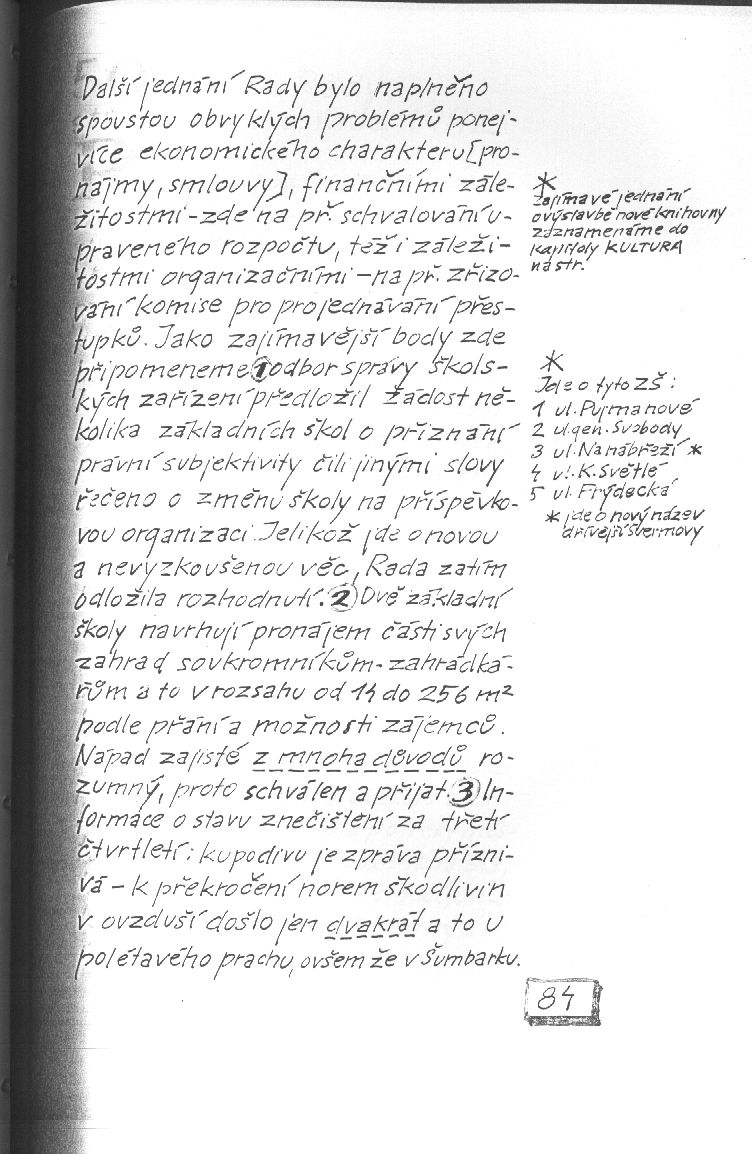 Další jednání Rady bylo naplněno
spoustou obvyklých problémů ponej-
více ekonomického charakteru [pro-
nájmy, smlouvy], finančními zále-
žitostmi - zde na př. schvalování u-
praveného rozpočtu, též i záleži-
tostmi organizačními - na př. zřizo-
vání komise pro projednávání přes-
tupků. Jako zajímavější body zde
připomeneme 1 odbor správy škols-
kých zařízení předložil žádost ně-
kolika základních škol o přiznání
právní subjektivity čili jinými slovy
řečeno o změnu školy na příspěvko-
vou organizaci. Jelikož jde o novou
a nevyzkoušenou věc, Rada zatím
odložila rozhodnutí. 2 Dvě základní
školy navrhují pronájem části svých
zahrad soukromníkům - zahrádká-
řům a to v rozsahu od 14 do 256 m²
podle přání a možností zájemců.
Nápad zajisté z mnoha důvodů ro-
zumný, proto schválen a přijat. 3 In-
formace o stavu znečištění za třetí
čtvrtletí: kupodivu je zpráva přízni-
vá - k překročení norem škodlivin
v ovzduší došlo jen dvakrát a to u
polétavého prachu, ovšem že v Šumbarku.
*
zajímavé jednání
o výstavbě nové knihovny
zaznamenáme do
kapitoly KULTURA
na str.
*
Jde o tyto ZŠ:
1 ul. Pujmanové
2 ul. gen. Svobody
3 ul. Na nábřeží *
4 ul. K. Světlé
5 ul. Frýdecká
* jde o nový název
dřívější Švermovy
84